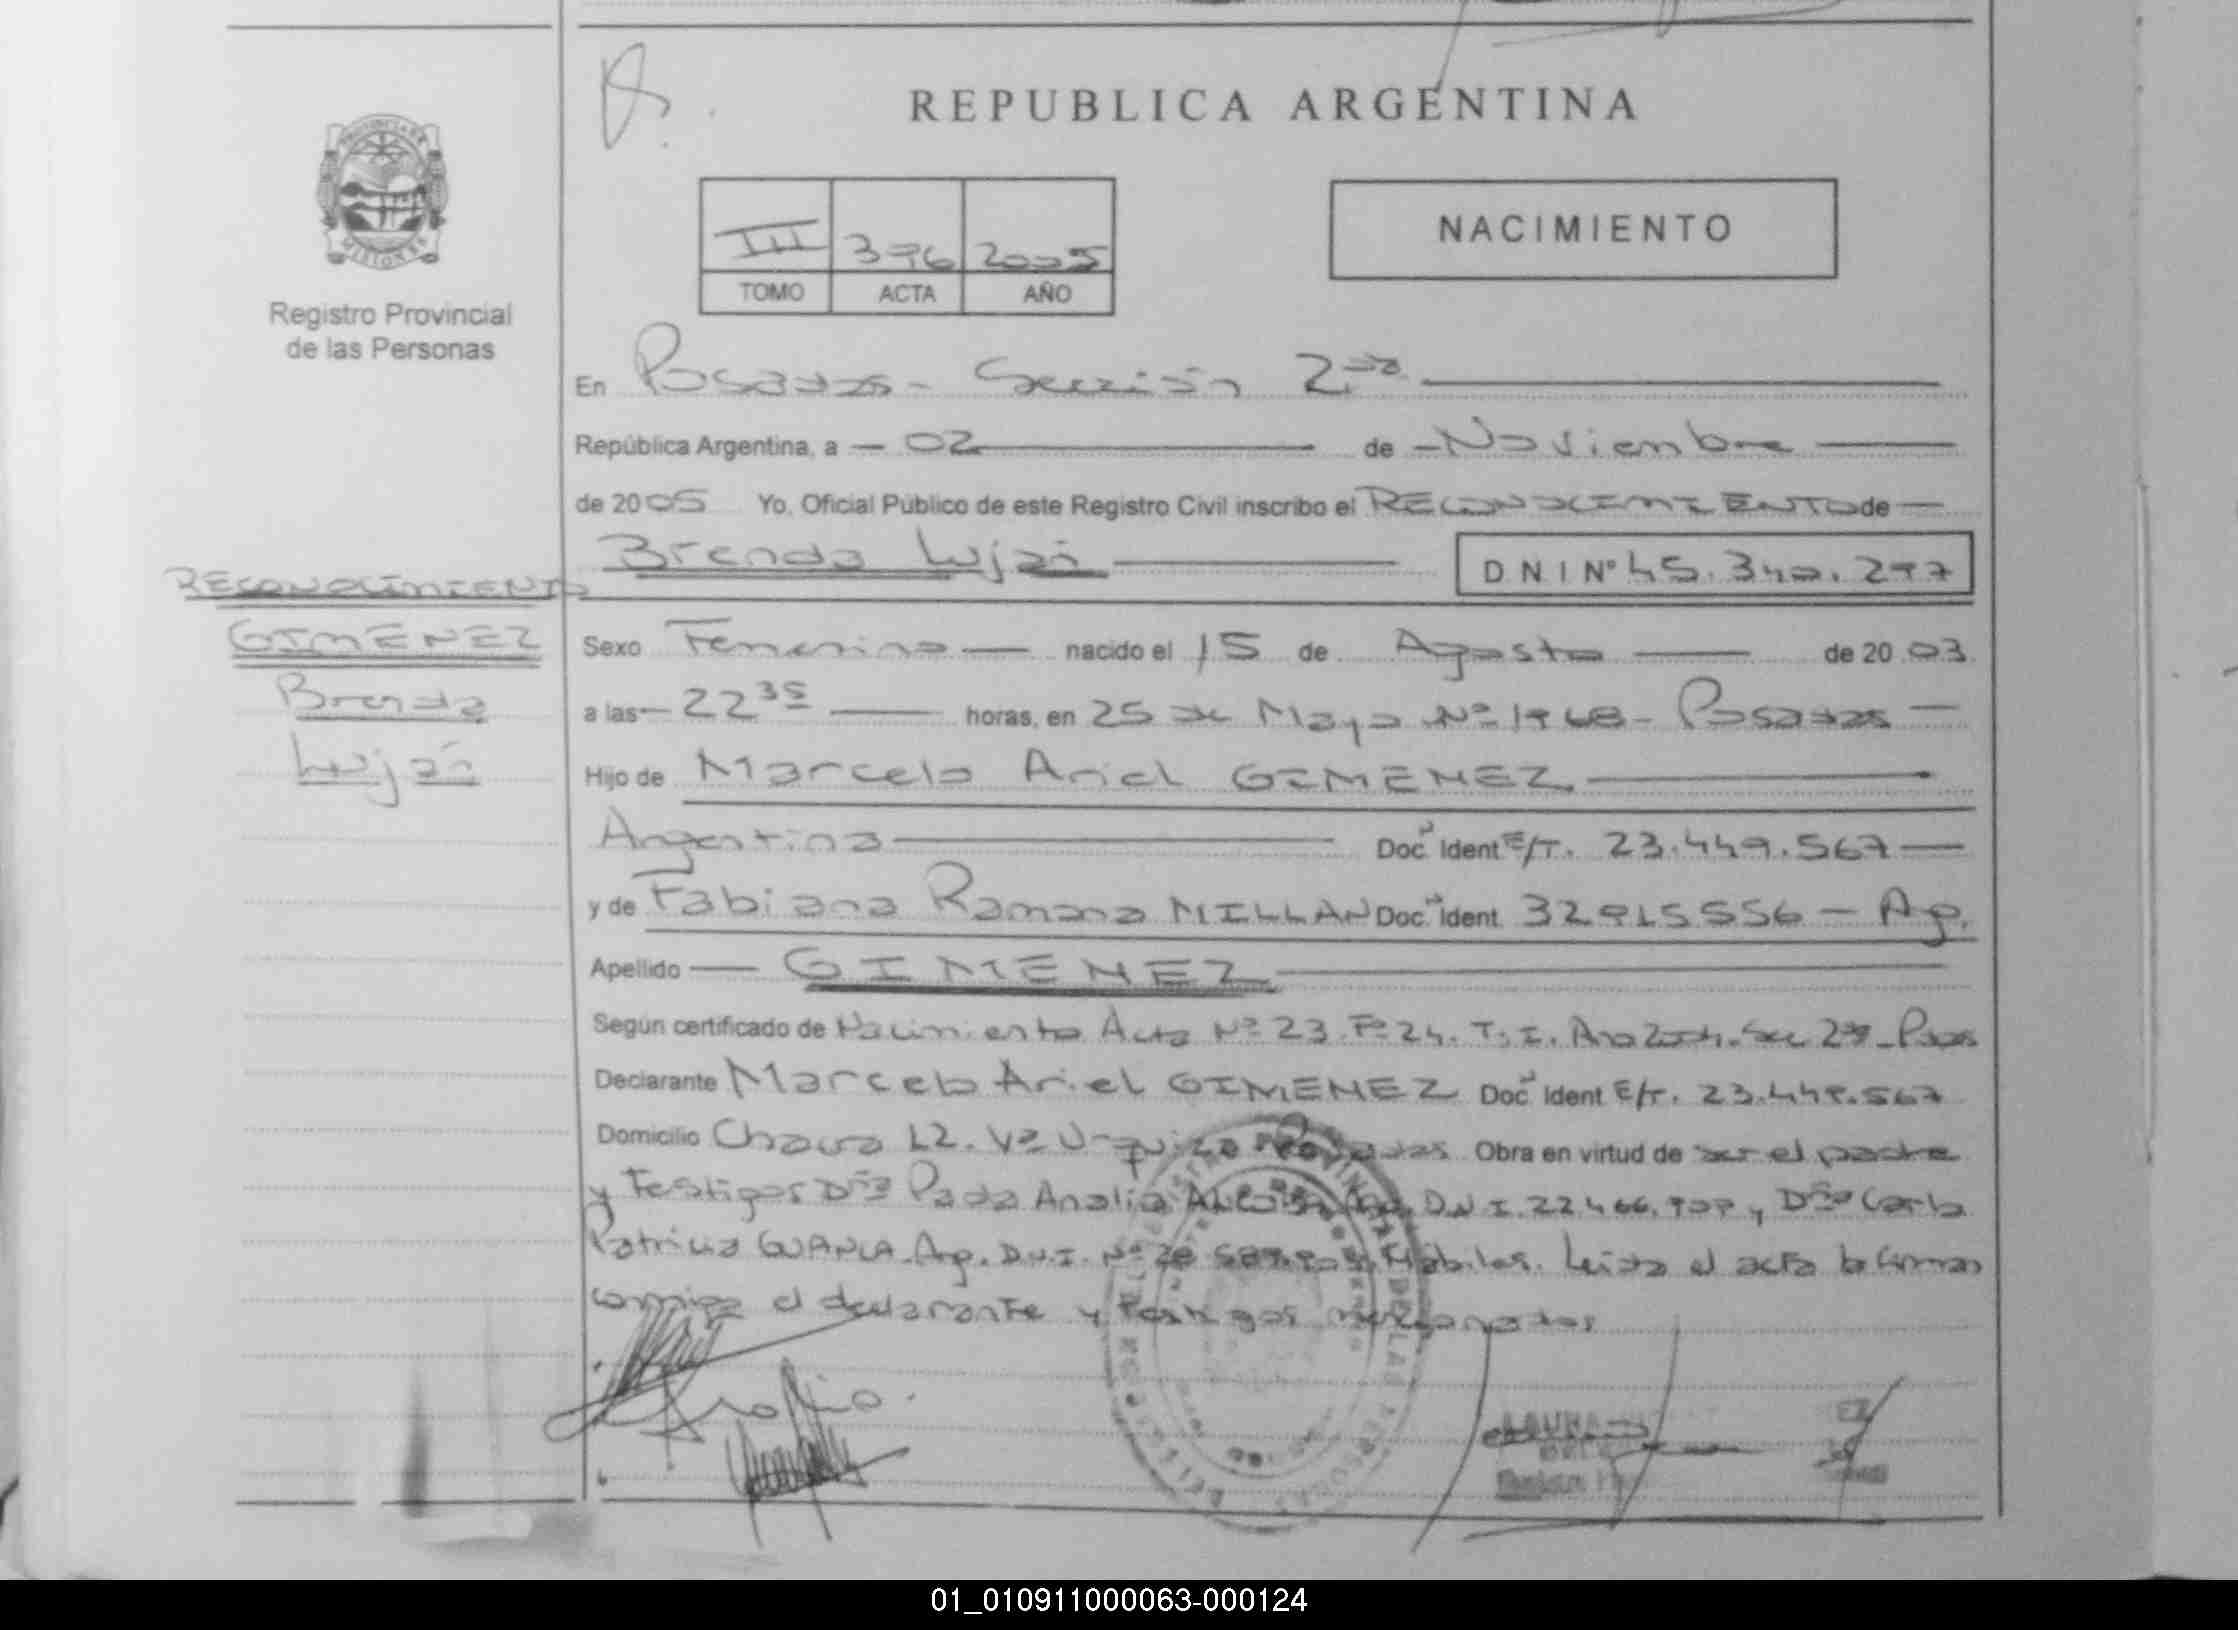 REPUBLICA ARGENTINA
PROVINCIA DE
MISIONES
Registro Provincial
de las Personas
NACIMIENTO
III 396 2005
TOMO ACTA AÑO
En Posadas - Sección 2da
República Argentina, a - 02 de - Noviembre
de 2005 Yo, Oficial Público de este Registro Civil inscribo el RECONOCIMIENTO de
Brenda Luján DNI Nº 45.340.297
RECONOCIMIENTO
GIMENEZ
Brenda
Luján
Sexo Femenino nacido el 15 de Agosto de 2003
a las 22 35 horas, en 25 de Mayo Nº 1968 - Posadas
Hijo de Marcelo Ariel GIMENEZ
Argentina Doc. Ident E/T. 23.449.567
y de Fabiana Ramona MILLAN Doc. Ident. 32915556 - Arg.
Apellido GIMENEZ
Según certificado de Nacimiento Acta Nº 23. Fº 24. T: I. Año 2004. Sec 2da - Pdas
Declarante Marcelo Ariel GIMENEZ Doc. Ident E/T. 23.449.567
Domicilio 12. Vª Urquiza Posadas Obra en virtud de ser el padre
y Testigos Dña Analia Arg. D.N.I. 22.466. y Dña Carla
Patricia Arg. D.N.I. Nº Hábiles. Leida el acta la firman
conmigo el declarante y testigos mencionados
01_010911000063-000124